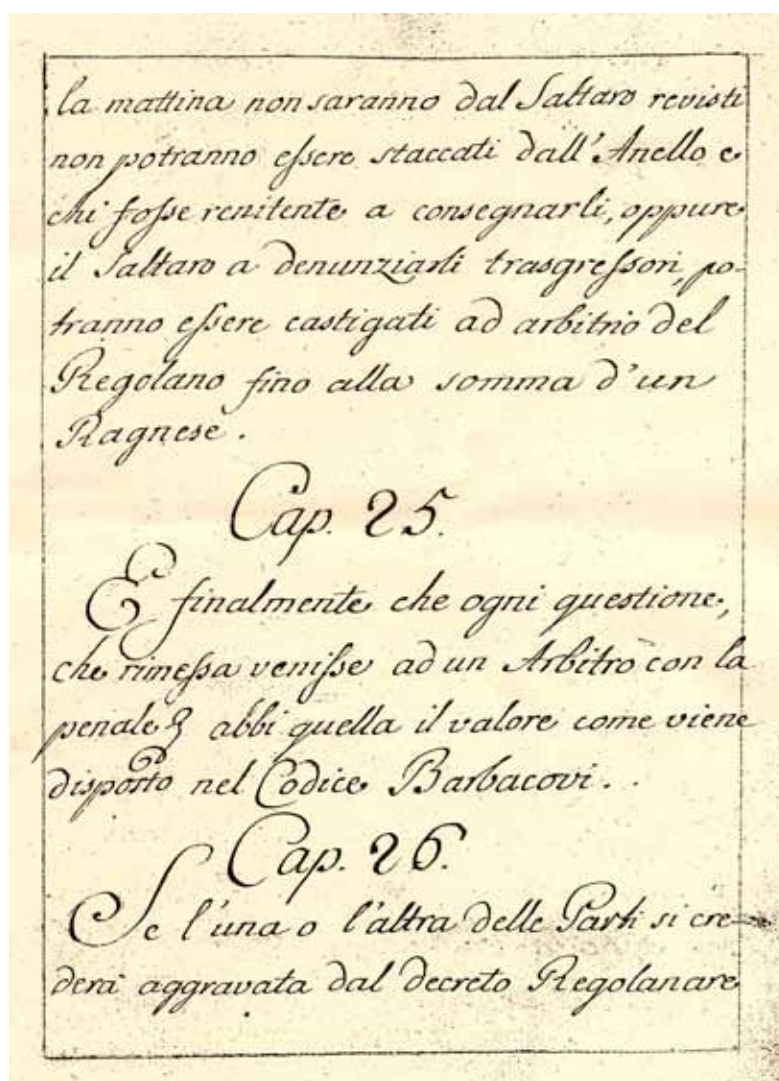 la mattina non saranno dal Saltaro revisti
non potranno essere staccati dall'Anello e
chi fosse renitente a consegnarli, oppure
il Saltaro a denunziarli trasgressori, po-
tranno essere castigati ad arbitrio del
Regolano fino alla somma d'un
Ragnese.
Cap. 25.
E finalmente che ogni questione,
che rimessa venisse ad un Arbitro con la
penale abbi quella il valore come viene
disposto nel Codice Barbacovi..
Cap. 26.
Se l'una o l'altra delle Parti si cre=
derà aggravata dal decreto Regolanare